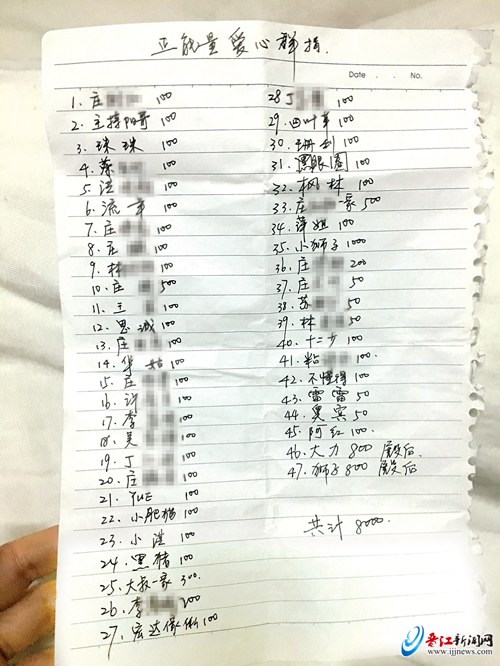 正能量爱心群捐
Date . . No.
1. 庄 100
2. 主持阳哥 100
3. 珠珠 100
4. 蔡 100
5. 汪 100
6. 流年 100
7. 庄 100
8. 庄 100
9. 林 100
10. 庄 500
11. 王 100
12. 思诚 100
13. 庄 100
14. 华 姑 100
15. 庄 100
16. 许 100
17. 李 100
18. 吴 100
19. 丁 100
20. 庄 100
21. YUE 100
22. 小肥猫 100
23. 小莲 100
24. 黑猪 100
25. 大叔一家 300.
26. 李 200
27. 宏达 100
28 丁 100
29. 四叶草 100
30. 100
31. 黑眼圈 100
32. 枫林 100
33. 庄 一家 500
34. 萍姐 100
35. 小狮子 1000
36. 庄 200
37. 庄 50
38. 苏 50
39. 林 50
40. 十二少 100
41. 粘 100
42. 不懂得 100
43. 雷雷 50
44. 昊宾 50
45. 阿红 100.
46. 大力 800 殿后.
47. 狮子 800 殿后
共计 8000.
晋江新闻网
www.ijjnews.com